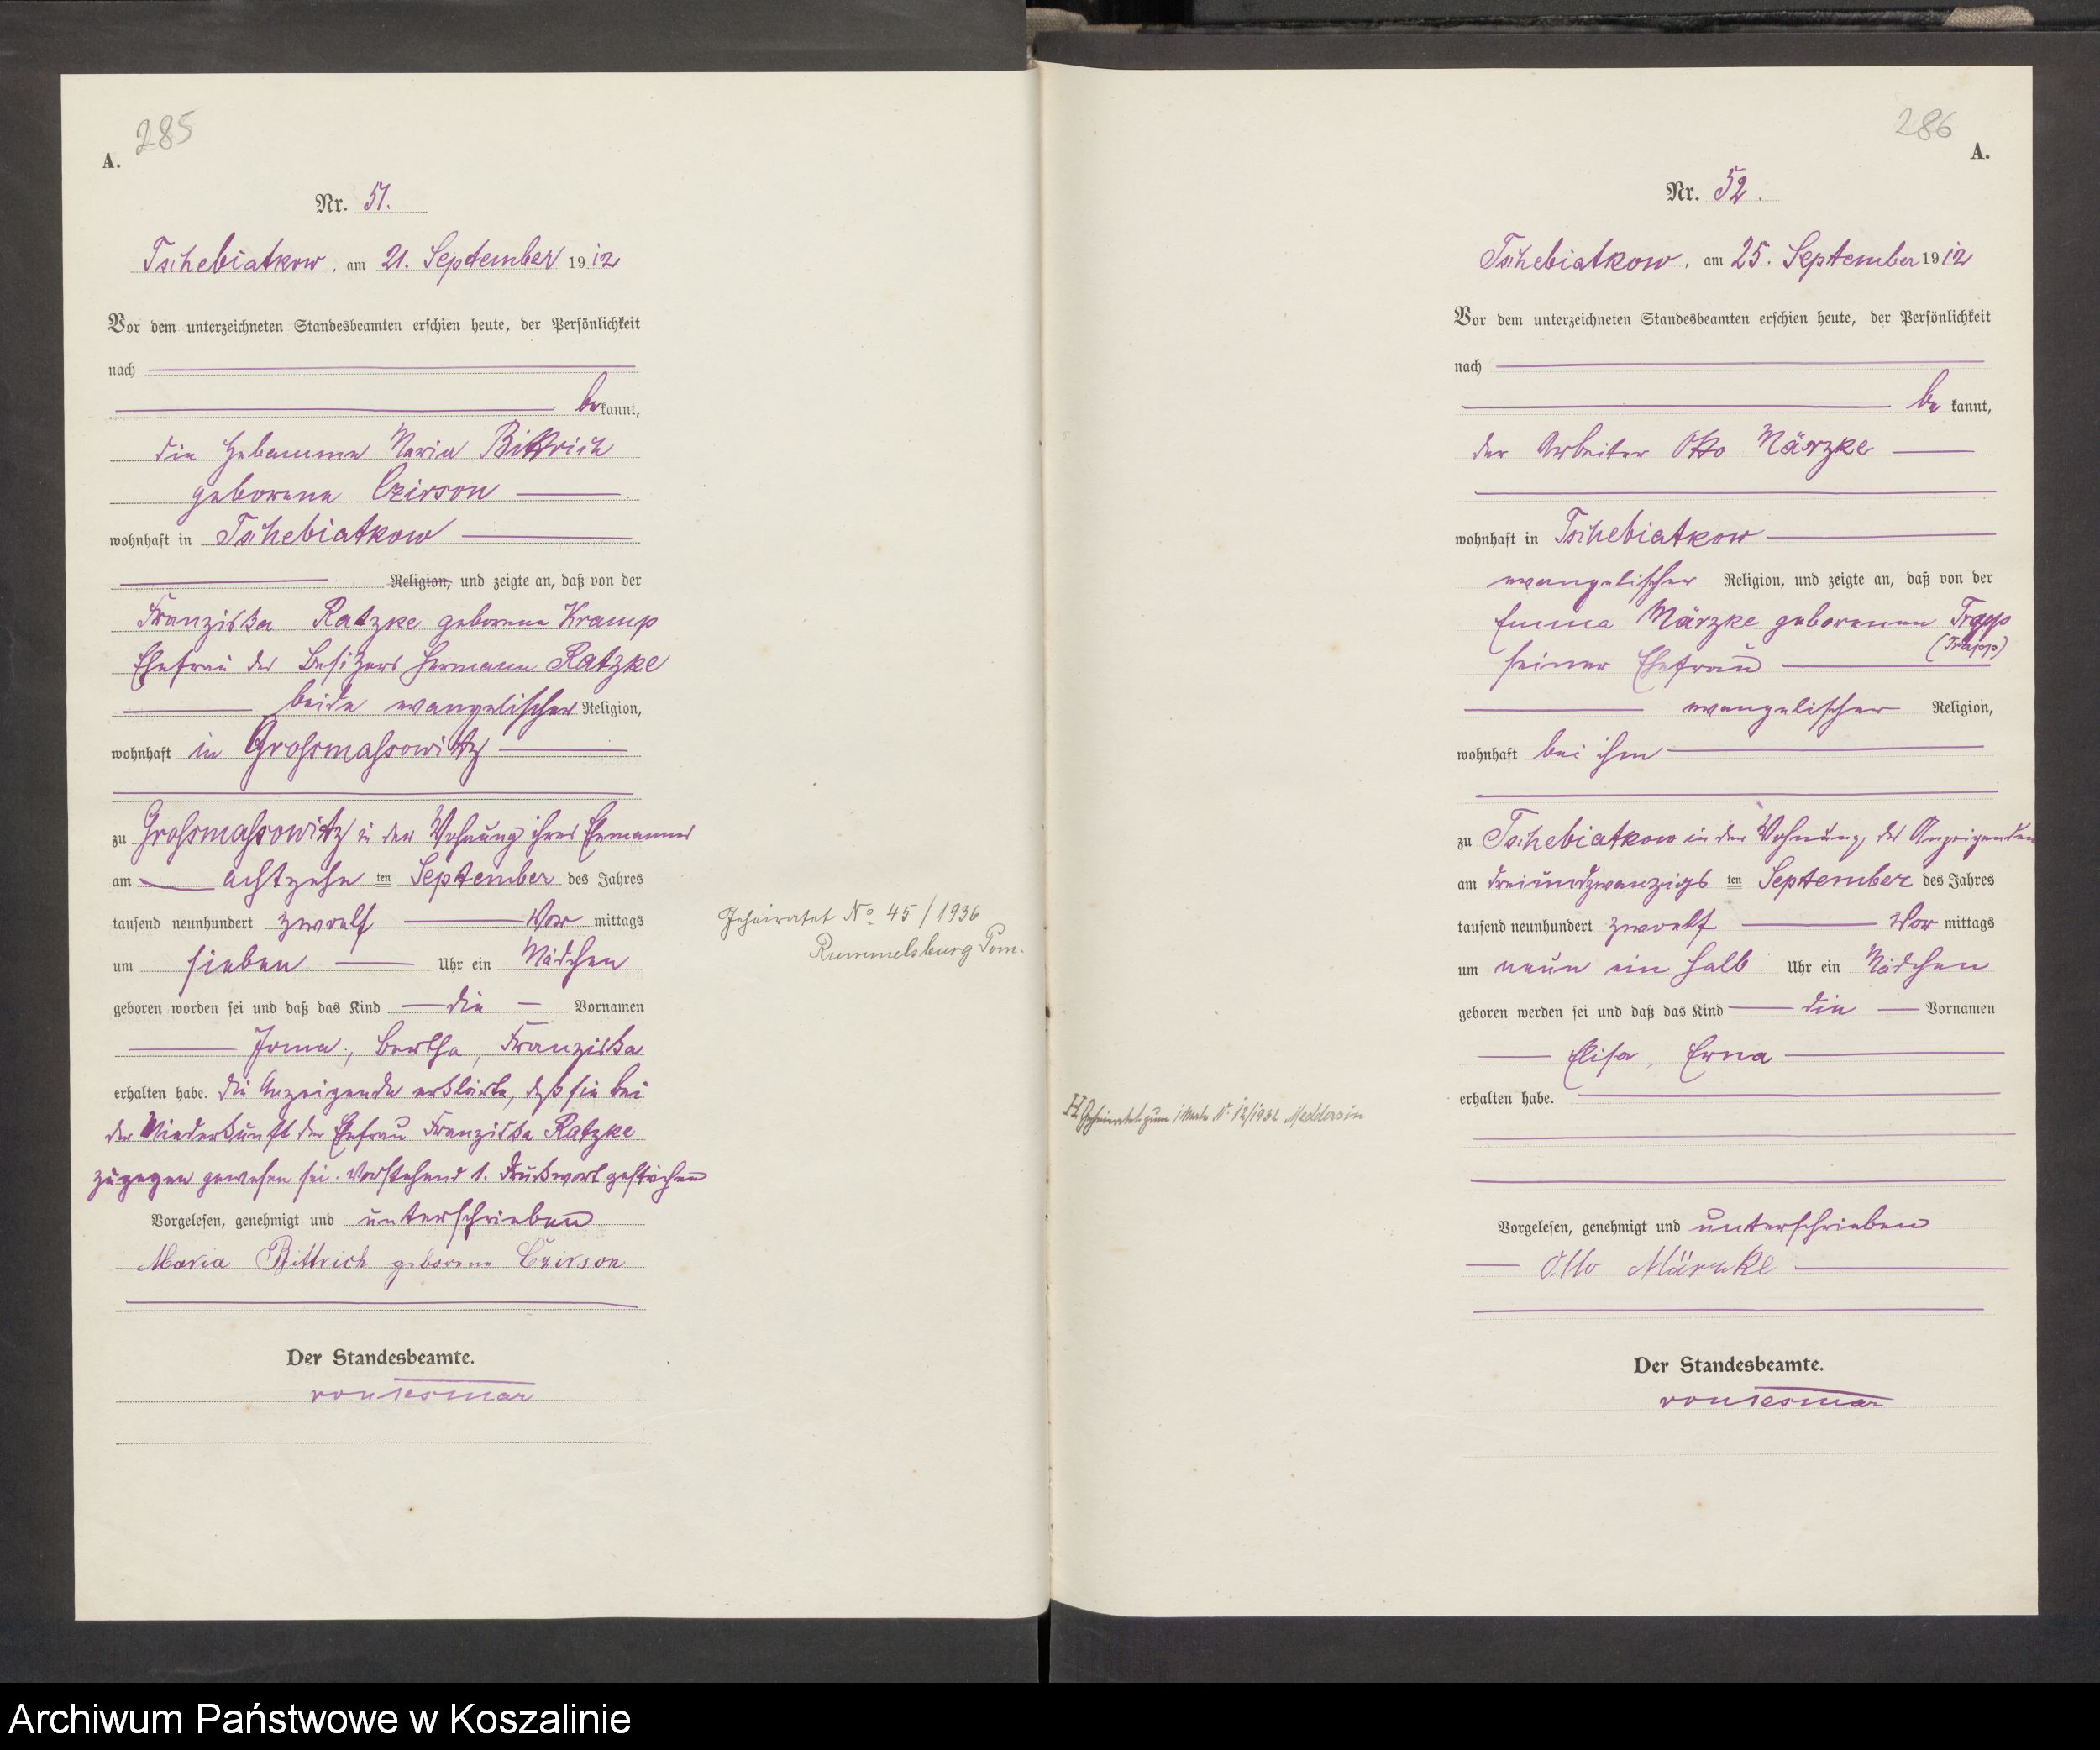 285
A.
Nr. 51.
Tschebiatkow, am 21. September 1912
Vor dem unterzeichneten Standesbeamten erschien heute, der Persönlichkeit
nach
bekannt,
die Hebamme Maria Bittrich
geborene Czirson
wohnhaft in Tschebiatkow
Religion, und zeigte an, daß von der
Franziska Ratzke geborene Kramp
Ehefrau des Besitzers Hermann Ratzke
beide evangelischer Religion,
wohnhaft in Grossmassowitz
zu Grossmassowitz in der Wohnung ihres Ehemannes
am achtzehn ten September des Jahres
tausend neunhundert zwoelf Vor mittags
um sieben Uhr ein Mädchen
geboren worden sei und daß das Kind die Vornamen
Bertha, Franziska
erhalten habe. Die Anzeigende erklärte, daß sie bei
der Niederkunft der Ehefrau Franziska Ratzke
zugegen gewesen sei. Vorstehend 1. Druckwort gestrichen
Vorgelesen, genehmigt und unterschrieben
Maria Bittrich geborene Czirson
Der Standesbeamte.
von Tesmar
Geheiratet No 45/1936
Rummelsburg Pom.
286
A.
Nr. 52.
Tschebiatkow, am 25. September 1912
Vor dem unterzeichneten Standesbeamten erschien heute, der Persönlichkeit
nach
be kannt,
der Arbeiter Otto Märzke
wohnhaft in Tschebiatkow
evangelischer Religion, und zeigte an, daß von der
Emma Märzke geborenen Trapp
(Trapp)
seiner Ehefrau
evangelischer Religion,
wohnhaft bei ihm
zu Tschebiatkow in der Wohnung des Anzeigenden
am dreiundzwanzigs ten September des Jahres
tausend neunhundert zwoelf Vor mittags
um neun ein halb Uhr ein Mädchen
geboren worden sei und daß das Kind die Vornamen
Elisa, Erna
erhalten habe.
H. Geheiratet zum 1 Male Nr. 12/1932 Meddersin
Vorgelesen, genehmigt und unterschrieben
Otto Märzke
Der Standesbeamte.
von Tesmar
Archiwum Państwowe w Koszalinie